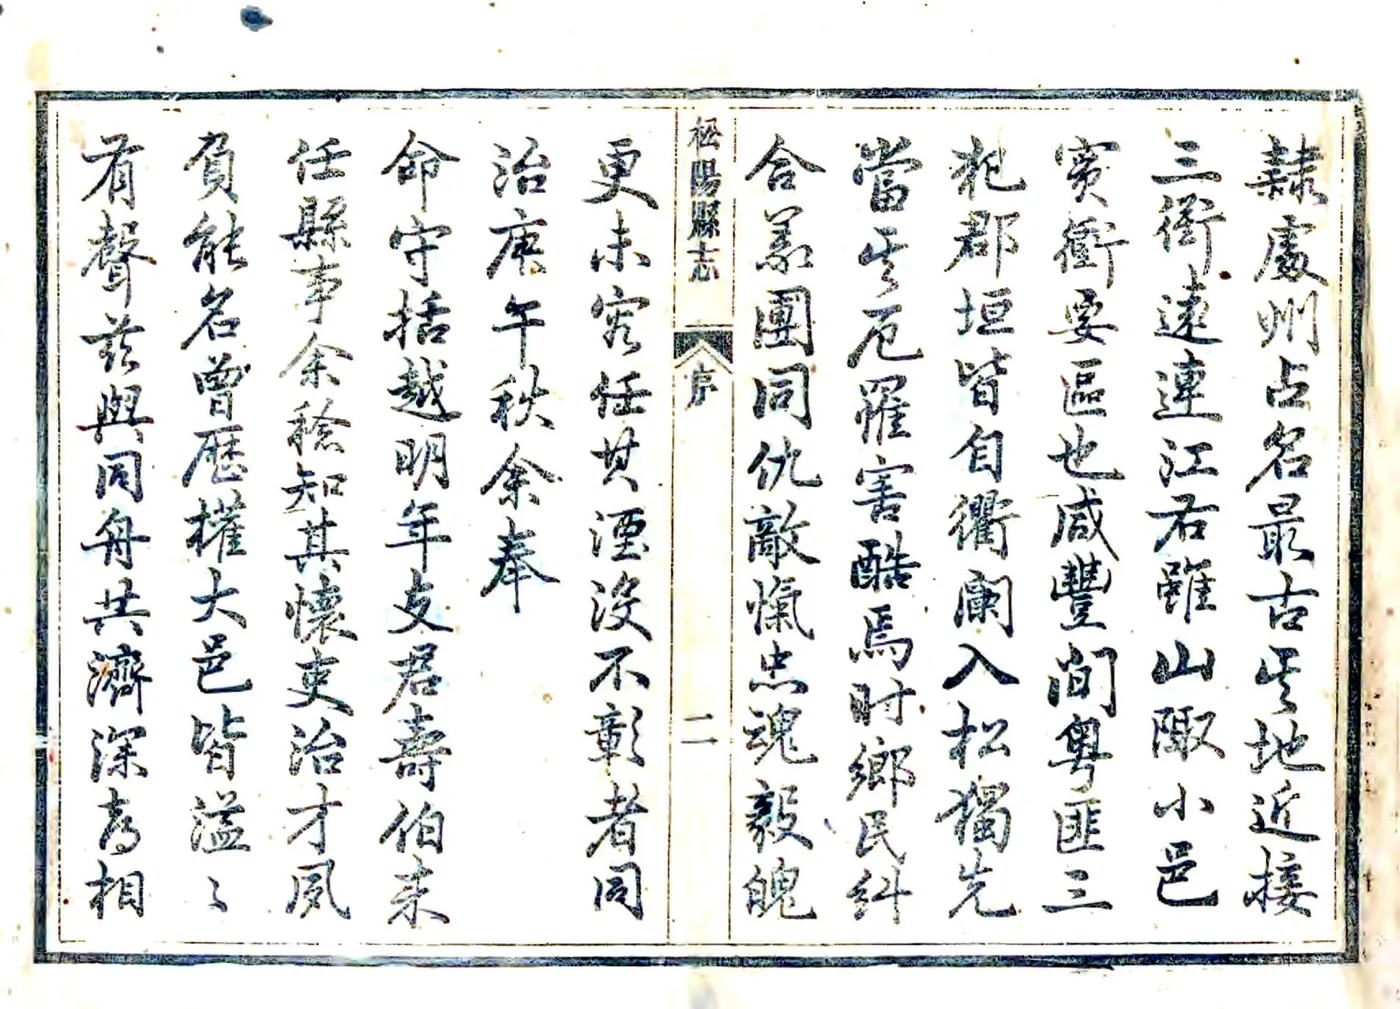 隸處州占名最古其地近接
三衢遠連江右雖山陬小邑
實衝要區也咸豐間粵匪三
犯郡垣皆自衢闌入松獨先
當其厄罹害酷焉时鄉民糾
合義團同仇敵愾忠魂毅魄
松陽縣志
序
二
更未容任其湮沒不彰者同
治庚午秋余奉
命守括越明年支君壽伯来
任縣事余稔知其懷吏治才夙
負能名曾歷權大邑皆溢〻
有聲茲與同舟共濟深喜相